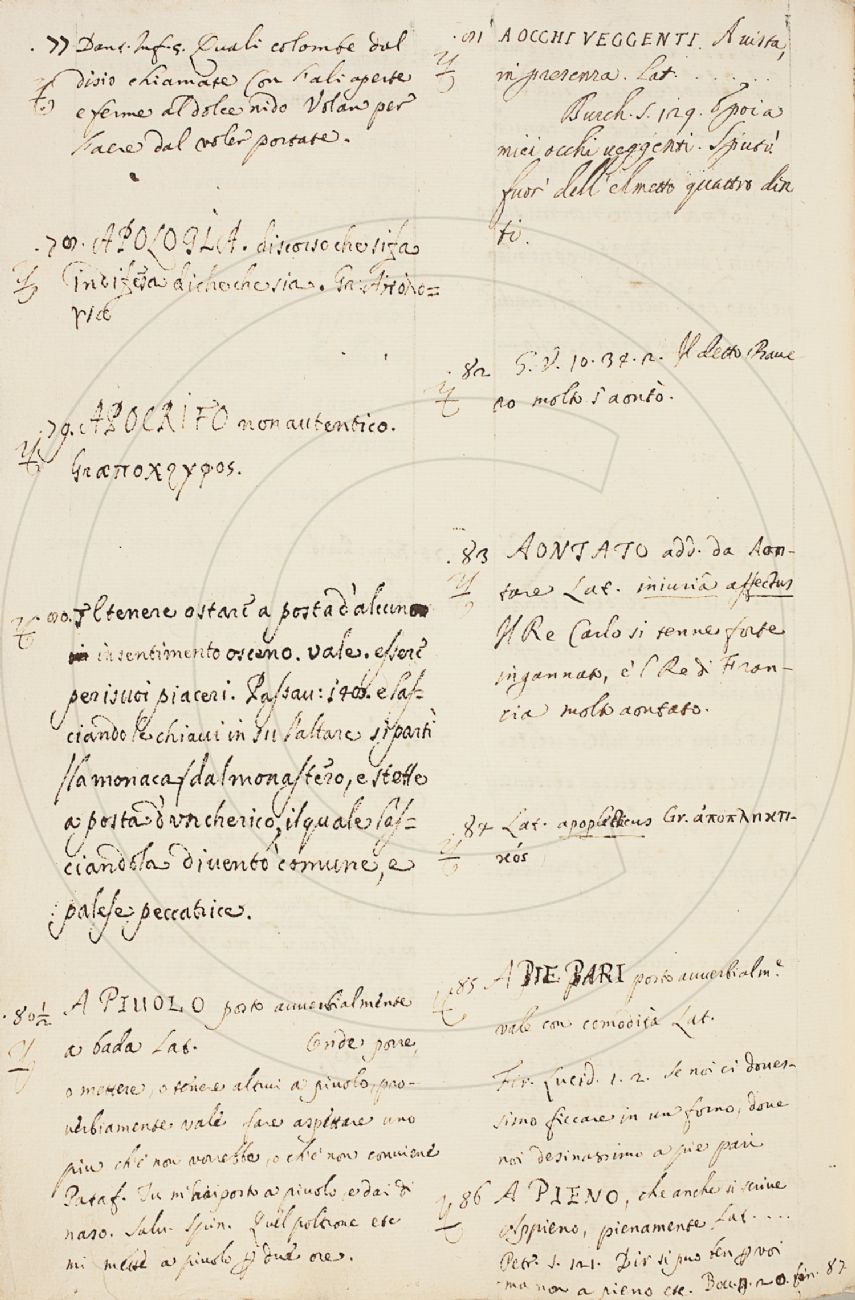 . 77 Dant. Inf. 5. Quali colombe dal
disio chiamate Con l'ali aperte
e ferme al dolce nido Volan per
l'aere dal voler portate.
. 78. APOLOGIA. discorso che si fa
in difesa di che che sia. Gr.
. 79. APOCRIFO non autentico.
Gr. αποκρυφος.
80. Il tenere o stare a posta d'alcuno
in sentimento osceno. vale. essere
per i suoi piaceri. Passau: e las=
ciando le chiavi in su l'altare si partì
(la monaca) dal monastero, e stette
a posta d'un cherico, il quale las=
ciandola diventò comune, e
palese peccatrice.
. 80 1/2 A PIUOLO posto avverbialmente
a bada Lat. Onde porre,
o mettere, o tenere altrui a piuolo, pro-
verbialmente vale fare aspettare uno
piu che non vorrebbe, o che non conviene
Pataf. Tu m'hai posto a piuolo, e dai di
naso. Salv. Spin. Quel poltrone etc
mi mette a piuolo p due ore.
. 81 A OCCHI VEGGENTI. A vista,
in presenza. Lat. . . . . .
Burch. s. 129. E poi a
miei occhi veggenti. Sputò
fuor dell'elmetto quattro den
ti.
. 82 G. V. 10. 34. 2. Il detto
ro molto s'aontò.
. 83 AONTATO add. da Aon-
tare Lat. iniuriâ affectus
Il Re Carlo si tenne forte
ingannato, e 'l Re di Fran-
cia molto aontato.
. 84 Lat. apoplecticus Gr. ἀποπληκτι-
κός
. 85 A PIE PARI posto avverbialm.e
vale con comodità Lat.
Fir. Lucid. 1. 2. Se noi ci doves-
simo ficcare in un forno, dove
noi desinassimo a pie pari
. 86 A PIENO, che anche si scrive
Appieno, pienamente Lat. . . . .
Petr. s. 121. Dir si puo ben p voi
ma non a pieno etc. Bocc. 87